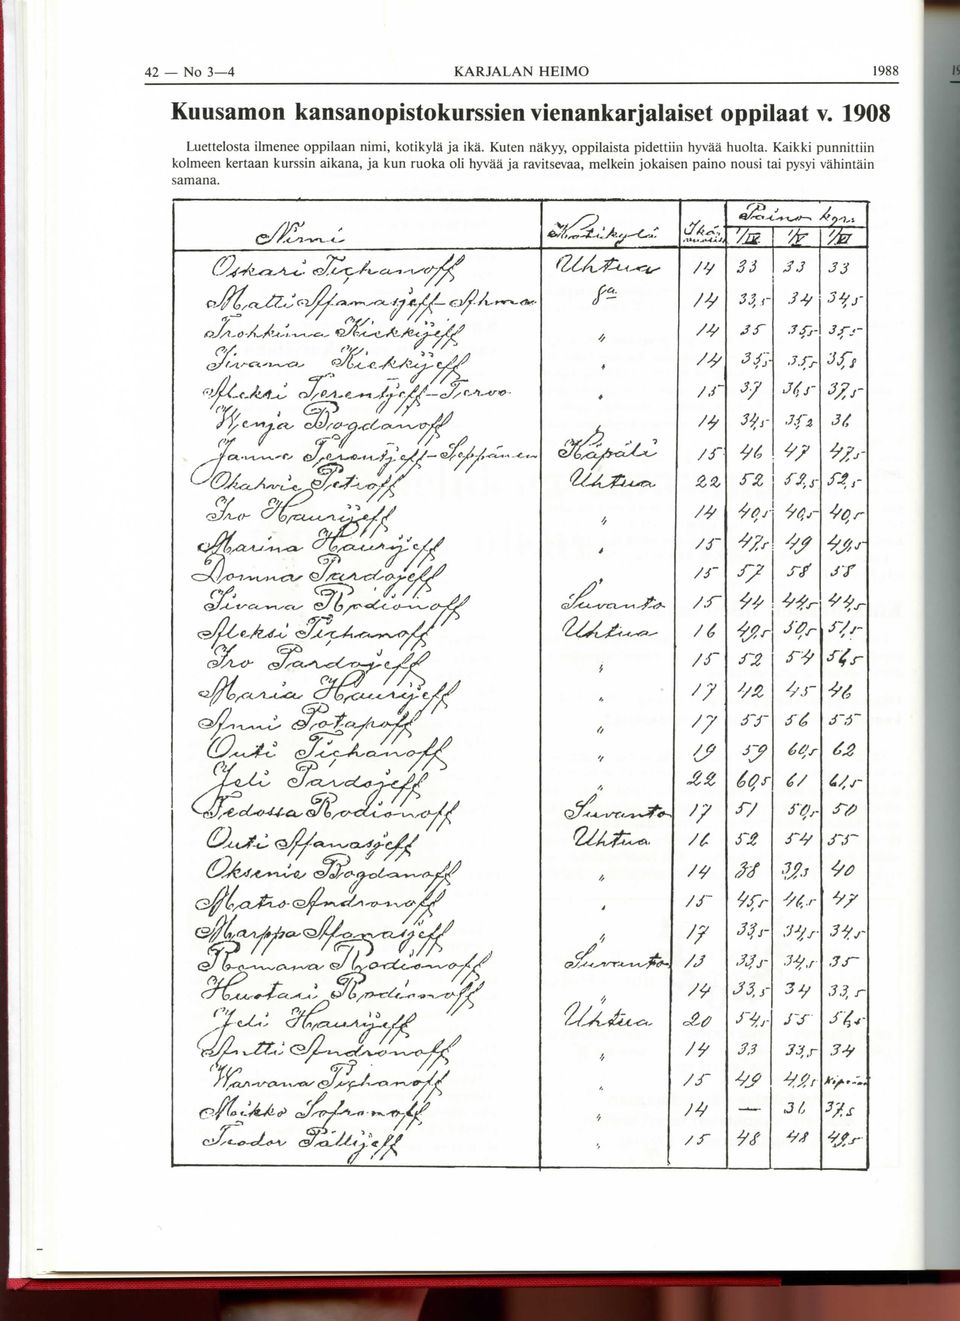 42 — No 3—4 KARJALAN HEIMO 1988
Kuusamon kansanopistokurssien vienankarjalaiset oppilaat v. 1908
Luettelosta ilmenee oppilaan nimi, kotikylä ja ikä. Kuten näkyy, oppilaista pidettiin hyvää huolta. Kaikki punnittiin
kolmeen kertaan kurssin aikana, ja kun ruoka oli hyvää ja ravitsevaa, melkein jokaisen paino nousi tai pysyi vähintäin
samana.
Nimi Kotikylä Ikä Paino kgr.
1/III 1/IV 1/VI
Oskari Tichanoff Uhtua 14 33 33 33
Matti Afanasjeff- 14 33,5 34 34,5
Kiekkijeff " 14 35 35,5 35,5
Iivana Kiekkijeff " 14 35,5 35,5
Aleksi Terentjeff-Tervo " 15 37 36,5 37,5
Wenja Bogdanoff 14 34,5 35,2 36
Terentjeff-Seppänen Käpäli 15 46 47 47,5
Okahvie Petroff Uhtua 22 52 52,5 52,5
Iro Haurijeff " 14 40,5 40,5 40,5
Marina Haurijeff " 15 47,5 49 49,5
Domna Pardojeff 15 57 58 58
Iivana Rodionoff Suvanto 15 44 44,5 44,5
Aleksi Tichanoff Uhtua 16 49,5 50,5 51,5
Iro Pardojeff " 15 52 54
Maria Haurijeff " 17 42 45 46
Anni Potapoff " 17 55 56 55
Outi Tichanoff " 19 59 60,5 62
Jeli Pardojeff " 22 60,5 61 61,5
Fedossa Rodionoff Suvanto 17 51 50,5 50
Outi Afanasjeff Uhtua 16 52 54 55
Oksenie Bogdanoff " 14 38 40
Matro Andronoff " 15 45,5 46,5 47
Marppa Afanasjeff " 17 33,5 34,5 34,5
Romana Rodionoff Suvanto 13 33,5 34,5 35
Huotari Rodionoff " 14 33,5 34 33,5
Jeli Haurijeff Uhtua 20 54,5 55
Antti Andronoff " 14 33 33,5 34
Warvana Tichanoff " 15 49 49,5
Miikko Sofronoff " 14 — 36 37,5
Teodor Pällijeff " 15 48 48 49,5